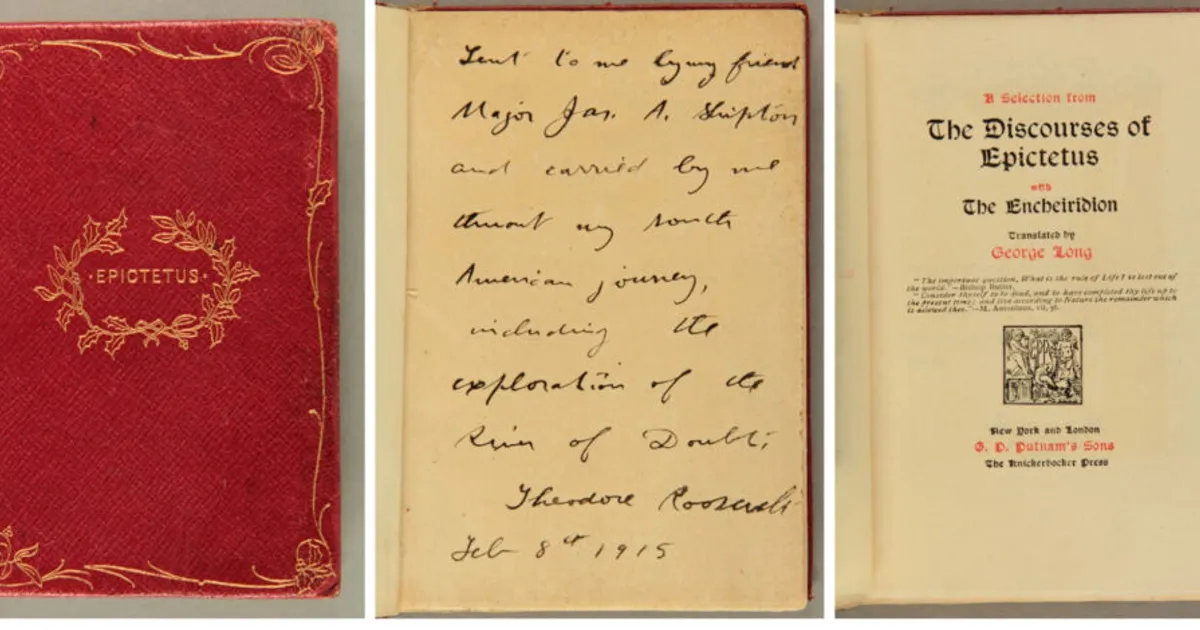 ·EPICTETUS·
Sent to me by my friend
Major Jas. A. Shipton
and carried by me
thruout my South
American journey,
including the
exploration of the
River of Doubt;
Theodore Roosevelt
Feb 8th 1915
A Selection from
The Discourses of
Epictetus
with
The Encheiridion
Translated by
George Long
"The important question, What is the rule of Life? is lost out of
the world."—Bishop Butler.
"Consider thyself to be dead, and to have completed thy life up to
the present time; and live according to Nature the remainder which
is allowed thee."—M. Antoninus, vii, 56.
New York and London
G. P. Putnam's Sons
The Knickerbocker Press